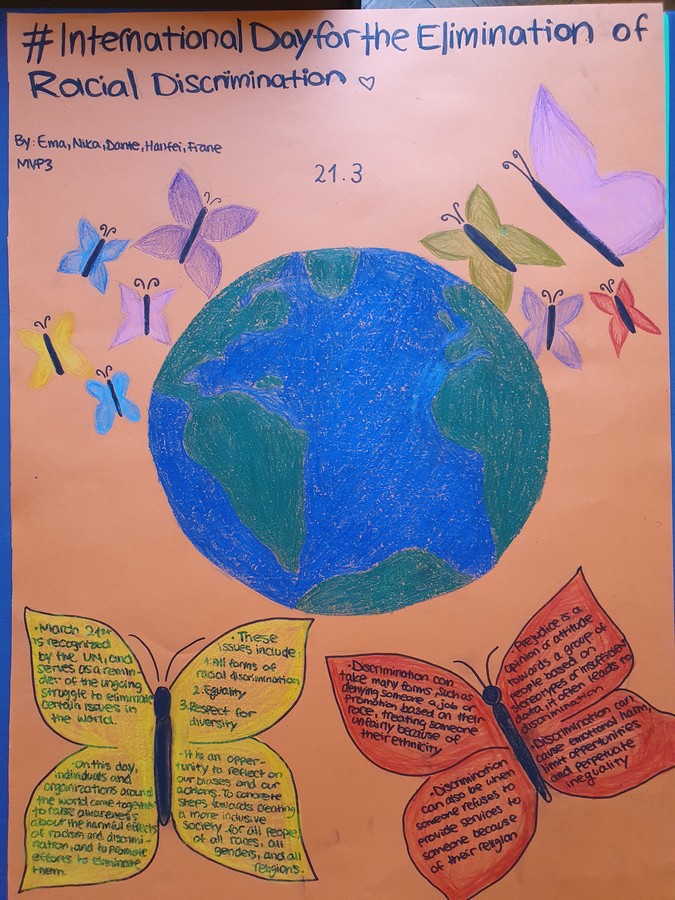 #International Day for the Elimination of
Racial Discrimination ♡
By: Ema, Nika, Dante, Hanfei, Frane
MVP3
21.3
• March 21st
is recognized
by the UN, and
serves as a remin-
der of the ongoing
struggle to eliminate
certain issues in
the world.
• These
issues include:
1. All forms of
racial discrimination
2. Equality
3. Respect for
diversity
• On this day,
individuals and
organizations around
the world come together
to raise awareness
about the harmful effects
of racism and discrimi-
nation, and to promote
efforts to eliminate
them.
• It is an oppor-
tunity to reflect on
our biases and our
actions. To concrete
steps towards creating
a more inclusive
society for all people,
of all races, all
genders, and all
religions.
• Discrimination can
take many forms, such as
denying someone a job or
promotion based on their
race, treating someone
unfairly because of
their ethnicity
• Prejudice is a
opinion or attitude
towards a group of
people based on
stereotypes or insufficient
data, it often leads to
discrimination
• Discrimination
can also be when
someone refuses to
provide services to
someone because
of their religion
• Discrimination can
cause emotional harm,
limit opportunities
and perpetuate
inequality